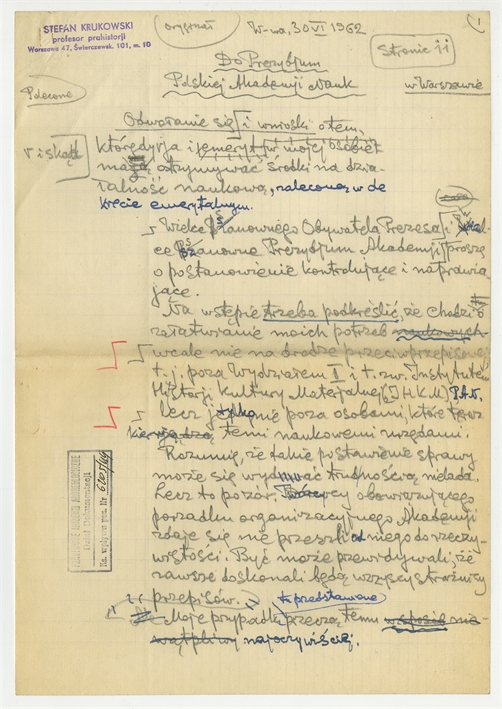 STEFAN KRUKOWSKI
profesor prehistorji
Warszawa 47, Świerczewsk. 101, m. 10
oryginał
W-wa, 30 VI 1962
1
Stronic 11
Do Prezydjum
Polskiej Akademji Nauk
w Warszawie
Polecone
Odwołanie się i wnioski o tem,
którędy i skąd
ja emeryt
otrzymywać środki na dzia-
łalność naukową, zaleconą w de
krecie emerytalnym.
Wielce Szanownego Obywatela Prezesa i
ce Szanowne Prezydjum Akademji proszę
o postanowienie kontrolujące i naprawia
jące.
Na wstępie trzeba podkreślić, że chodzi o
załatwianie moich potrzeb naukowych
wcale nie na drodze przeciwprzepisowej
t. j. poza Wydziałem II i t. zw. Instytutem
Historji Kultury Materjalnej (I.H.K.M) P.A.N.
lecz jedynie poza osobami, które teraz
kierują temi naukowemi urzędami.
Rozumię, że takie postawienie sprawy
może się wydawać trudnością nielada.
Lecz to pozór. Twórcy obowiązującego
porządku organizacyjnego Akademji
zdaje się nie przeszli od niego do rzeczy-
wistości. Być może przewidywali, że
zawsze doskonali będą wszyscy stróżowie
przepisów.
tu przedstawione
Moje przypadki przeczą temu
wątpliwy najoczywiściej.
Na. wpływu poz. Nr